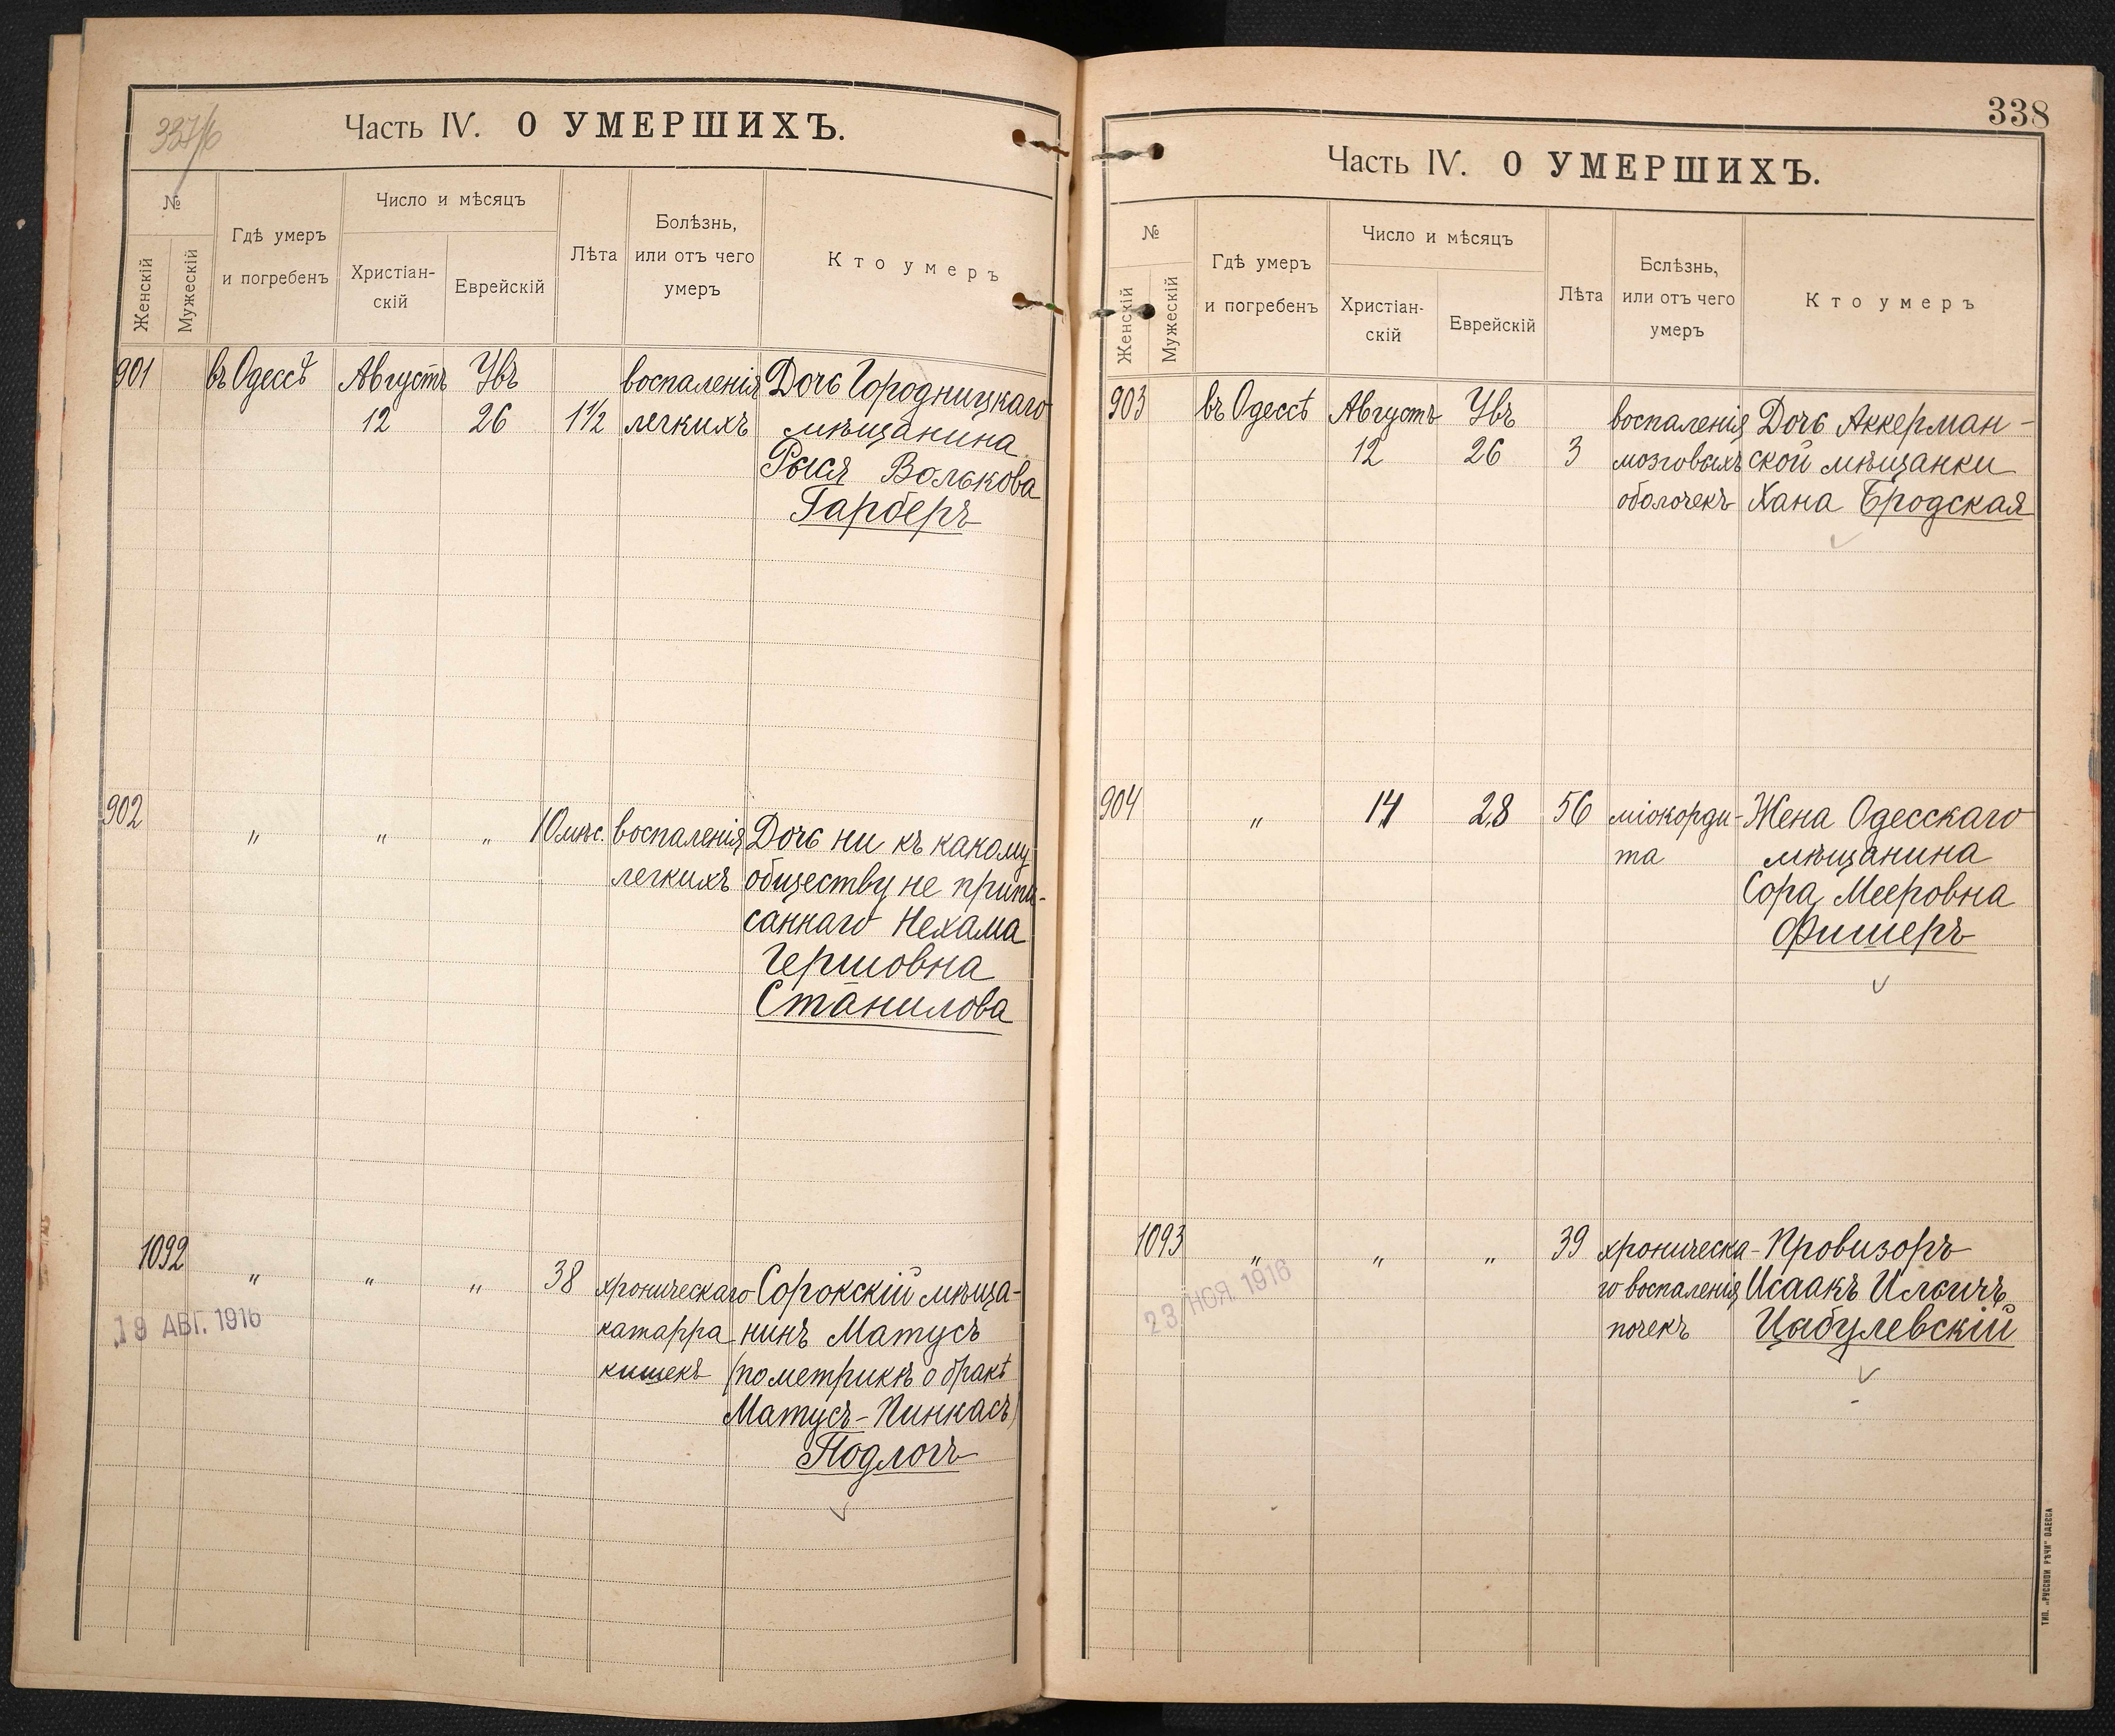 337/б
Часть IV. О УМЕРШИХЪ.
№
Женскій
Мужескій
Гдѣ умеръ
и погребенъ
Число и мѣсяцъ
Христіан-
скій
Еврейскій
Лѣта
Болѣзнь,
или отъ чего
умеръ
Кто умеръ
901 въ Одессѣ Августъ Увъ воспаленія Дочь Городницкаго
12 26 1½ легкихъ мѣщанина
Рыся Волькова
Гарберъ
902 " " " 10 мѣс. воспаленія Дочь ни къ какому
легкихъ обществу не припи-
саннаго Нехама
Гершовна
Станилова
1092 " " " 38 хроническаго Сорокскій мѣща-
19 АВГ. 1916 катарра нинъ Матусъ
кишекъ (по метрикѣ о бракѣ
Матусъ-Пинкасъ)
Подлогъ
338
Часть IV. О УМЕРШИХЪ.
№
Женскій
Мужескій
Гдѣ умеръ
и погребенъ
Число и мѣсяцъ
Христіан-
скій
Еврейскій
Лѣта
Бслѣзнь,
или отъ чего
умеръ
Кто умеръ
903 въ Одессѣ Августъ Увъ воспаленія Дочь Аккерман-
12 26 3 мозговыхъ ской мѣщанки
оболочекъ Хана Бродская
904 " 14 28 56 міокорди- Жена Одесскаго
та мѣщанина
Сора Мееровна
Фишеръ
1093 " " " 39 хроническа- Провизоръ
23 НОЯ. 1916 го воспаленія Исаакъ Ильичъ
почекъ Цабулевскій
ТИП. „РУССКОЙ РѢЧИ" ОДЕССА